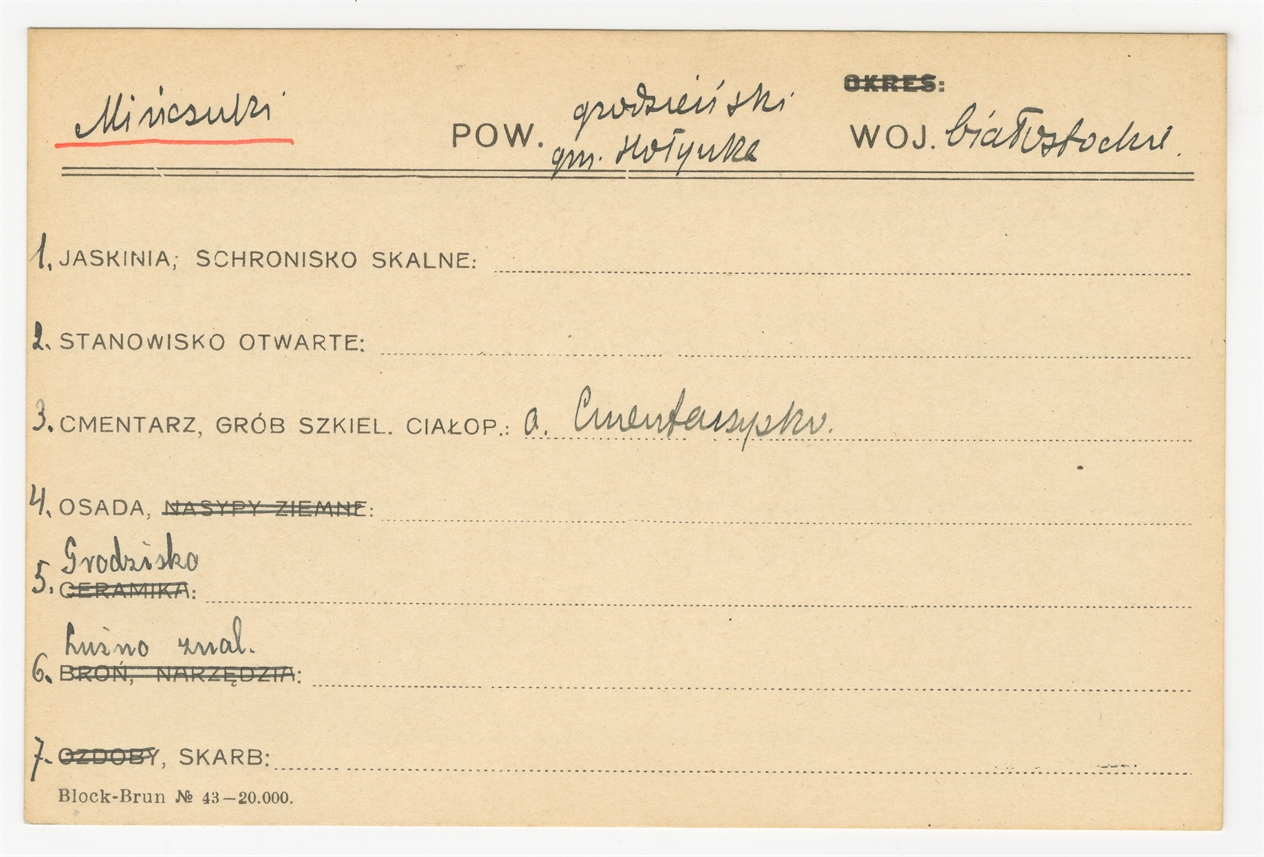 OKRES:
Mińczuki POW. grodzieński WOJ. białostockie.
gm. Hołynka
1. JASKINIA; SCHRONISKO SKALNE:
2. STANOWISKO OTWARTE:
3. CMENTARZ, GRÓB SZKIEL. CIAŁOP.: a. Cmentarzysko.
4. OSADA, NASYPY ZIEMNE:
Grodzisko
5. CERAMIKA:
Luźno znal.
6. BROŃ, NARZĘDZIA:
7. OZDOBY, SKARB:
Block-Brun № 43—20.000.